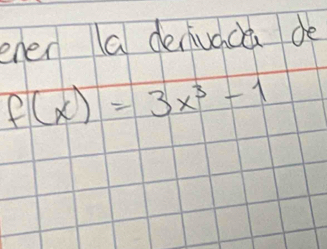 ener la derivada de
f(x) = 3x³ - 1